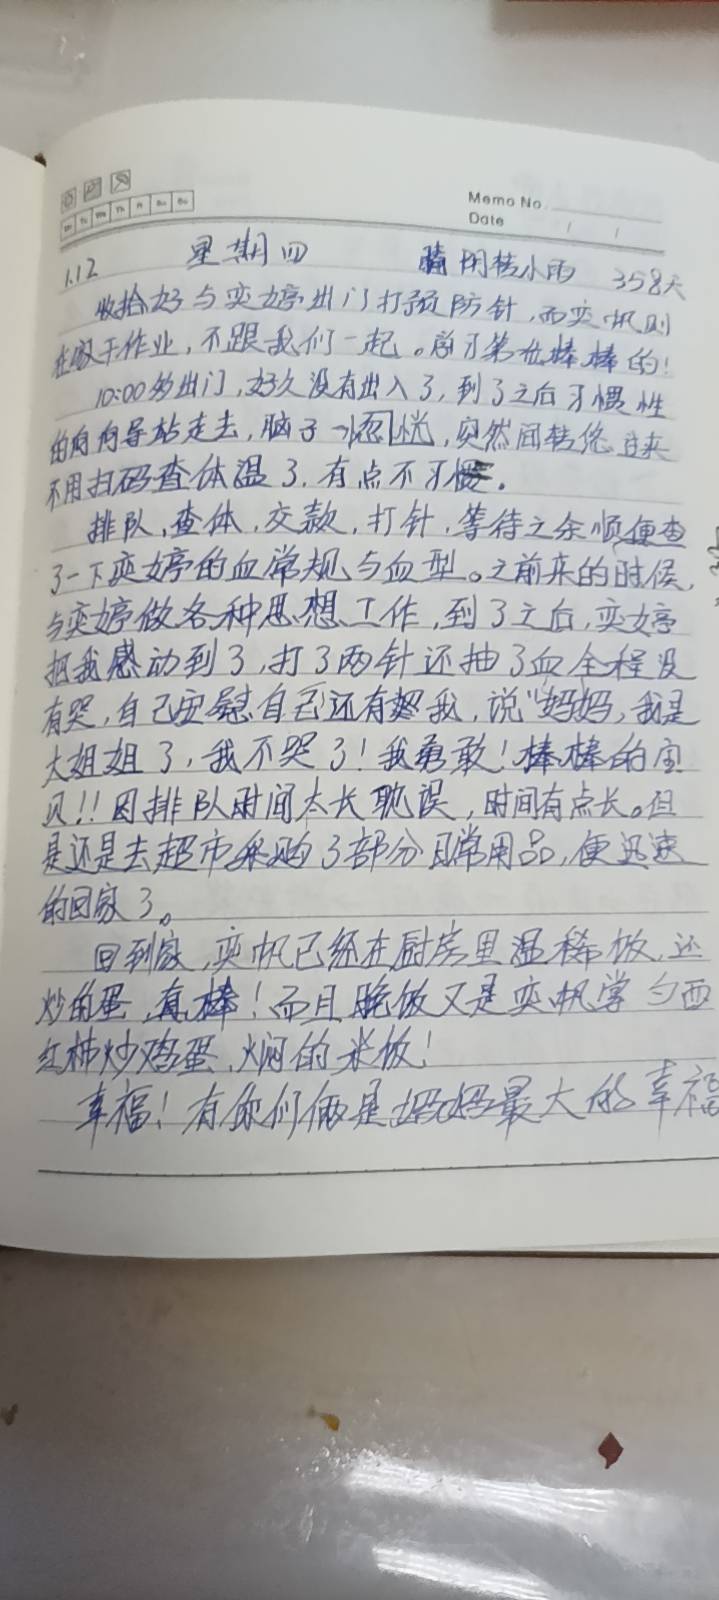 Memo No.
Mo Tu We Th Fr Sa Su
Date / /
1.12 星期四 阴转小雨 358天
收拾好与奕婷出门打预防针,而奕帆则
在家干作业,不跟我们一起。棒棒的!
10:00多出门,好久没有出入了,到了之后习惯性
的向导站走去,脑子一恍,突然间转
不用扫码查体温了,有点不习惯。
排队,查体,交款,打针,等待之余顺便查
了一下奕婷的血常规与血型。之前来的时候,
与奕婷做各种思想工作,到了之后,奕婷
把我感动到了,打了两针还抽了血全程没
有哭,自己安慰自己还有我,说"妈妈,我是
大姐姐了,我不哭了!我勇敢!棒棒的宝
贝!!因排队时间太长耽误,时间有点长。但
是还是去超市采购了部分日常用品,便迅速
的回家了。
回到家,奕帆已经在厨房里温稀饭,还
炒的蛋,真棒!而且晚饭又是奕帆掌勺西
红柿炒鸡蛋,焖的米饭!
幸福!有你们俩是妈妈最大的幸福